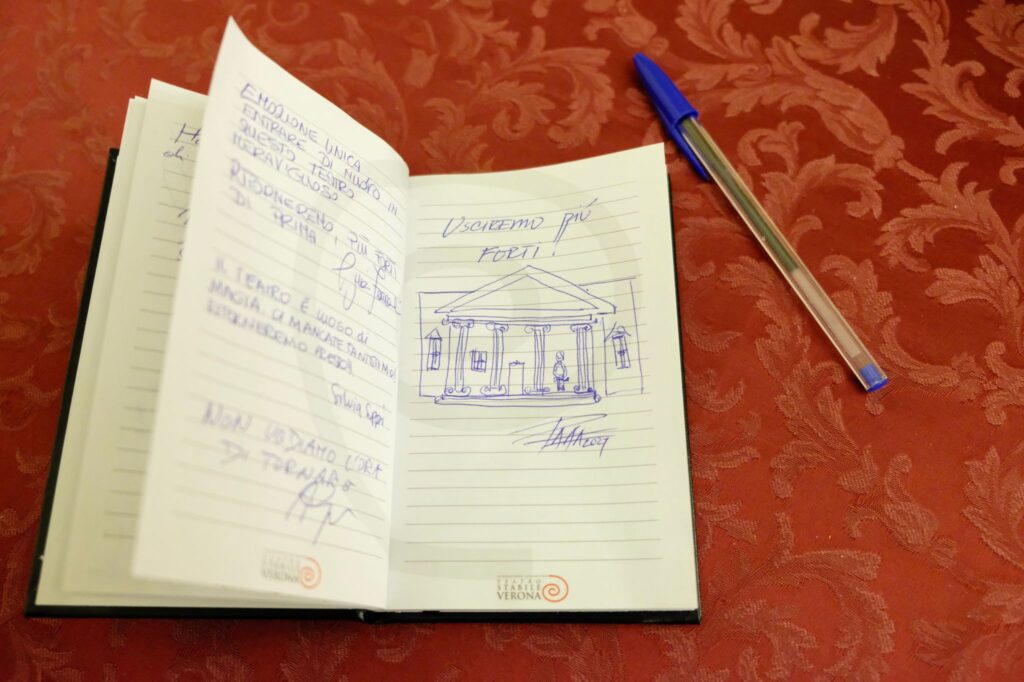 EMOZIONE UNICA
ENTRARE DI NUOVO IN
QUESTO TEATRO
MERAVIGLIOSO
RITORNEREMO, PIÙ FORTI
DI PRIMA!
IL TEATRO È LUOGO DI
MAGIA. CI MANCATE TANTISSIMO!
RITORNEREMO PRESTO!!
Silvia
NON VEDIAMO L'ORA
DI TORNARE
VERONA
USCIREMO PIÚ
FORTI!
2021
TEATRO
STABILE
VERONA